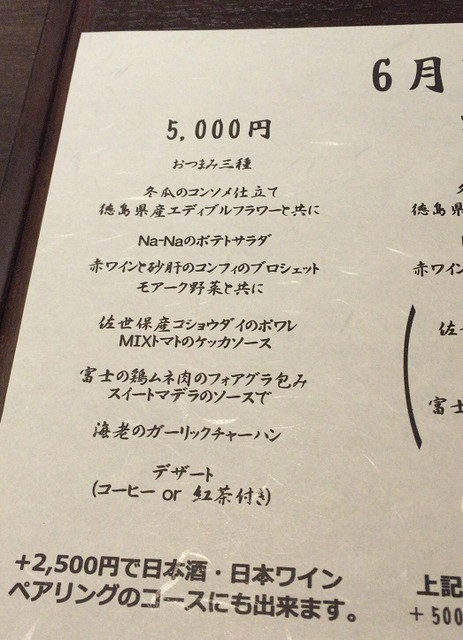 6月
5,000円
おつまみ三種
冬瓜のコンソメ仕立て
徳島県産エディブルフラワーと共に
Na-Naのポテトサラダ
赤ワインと砂肝のコンフィのブロシェット
モアーク野菜と共に
佐世保産コショウダイのポワレ
MIXトマトのケッカソース
富士の鶏ムネ肉のフォアグラ包み
スイートマデラのソースで
海老のガーリックチャーハン
デザート
(コーヒー or 紅茶付き)
+2,500円で日本酒・日本ワイン
ペアリングのコースにも出来ます。
徳島県
赤ワイン
佐世
富士
上記
+500